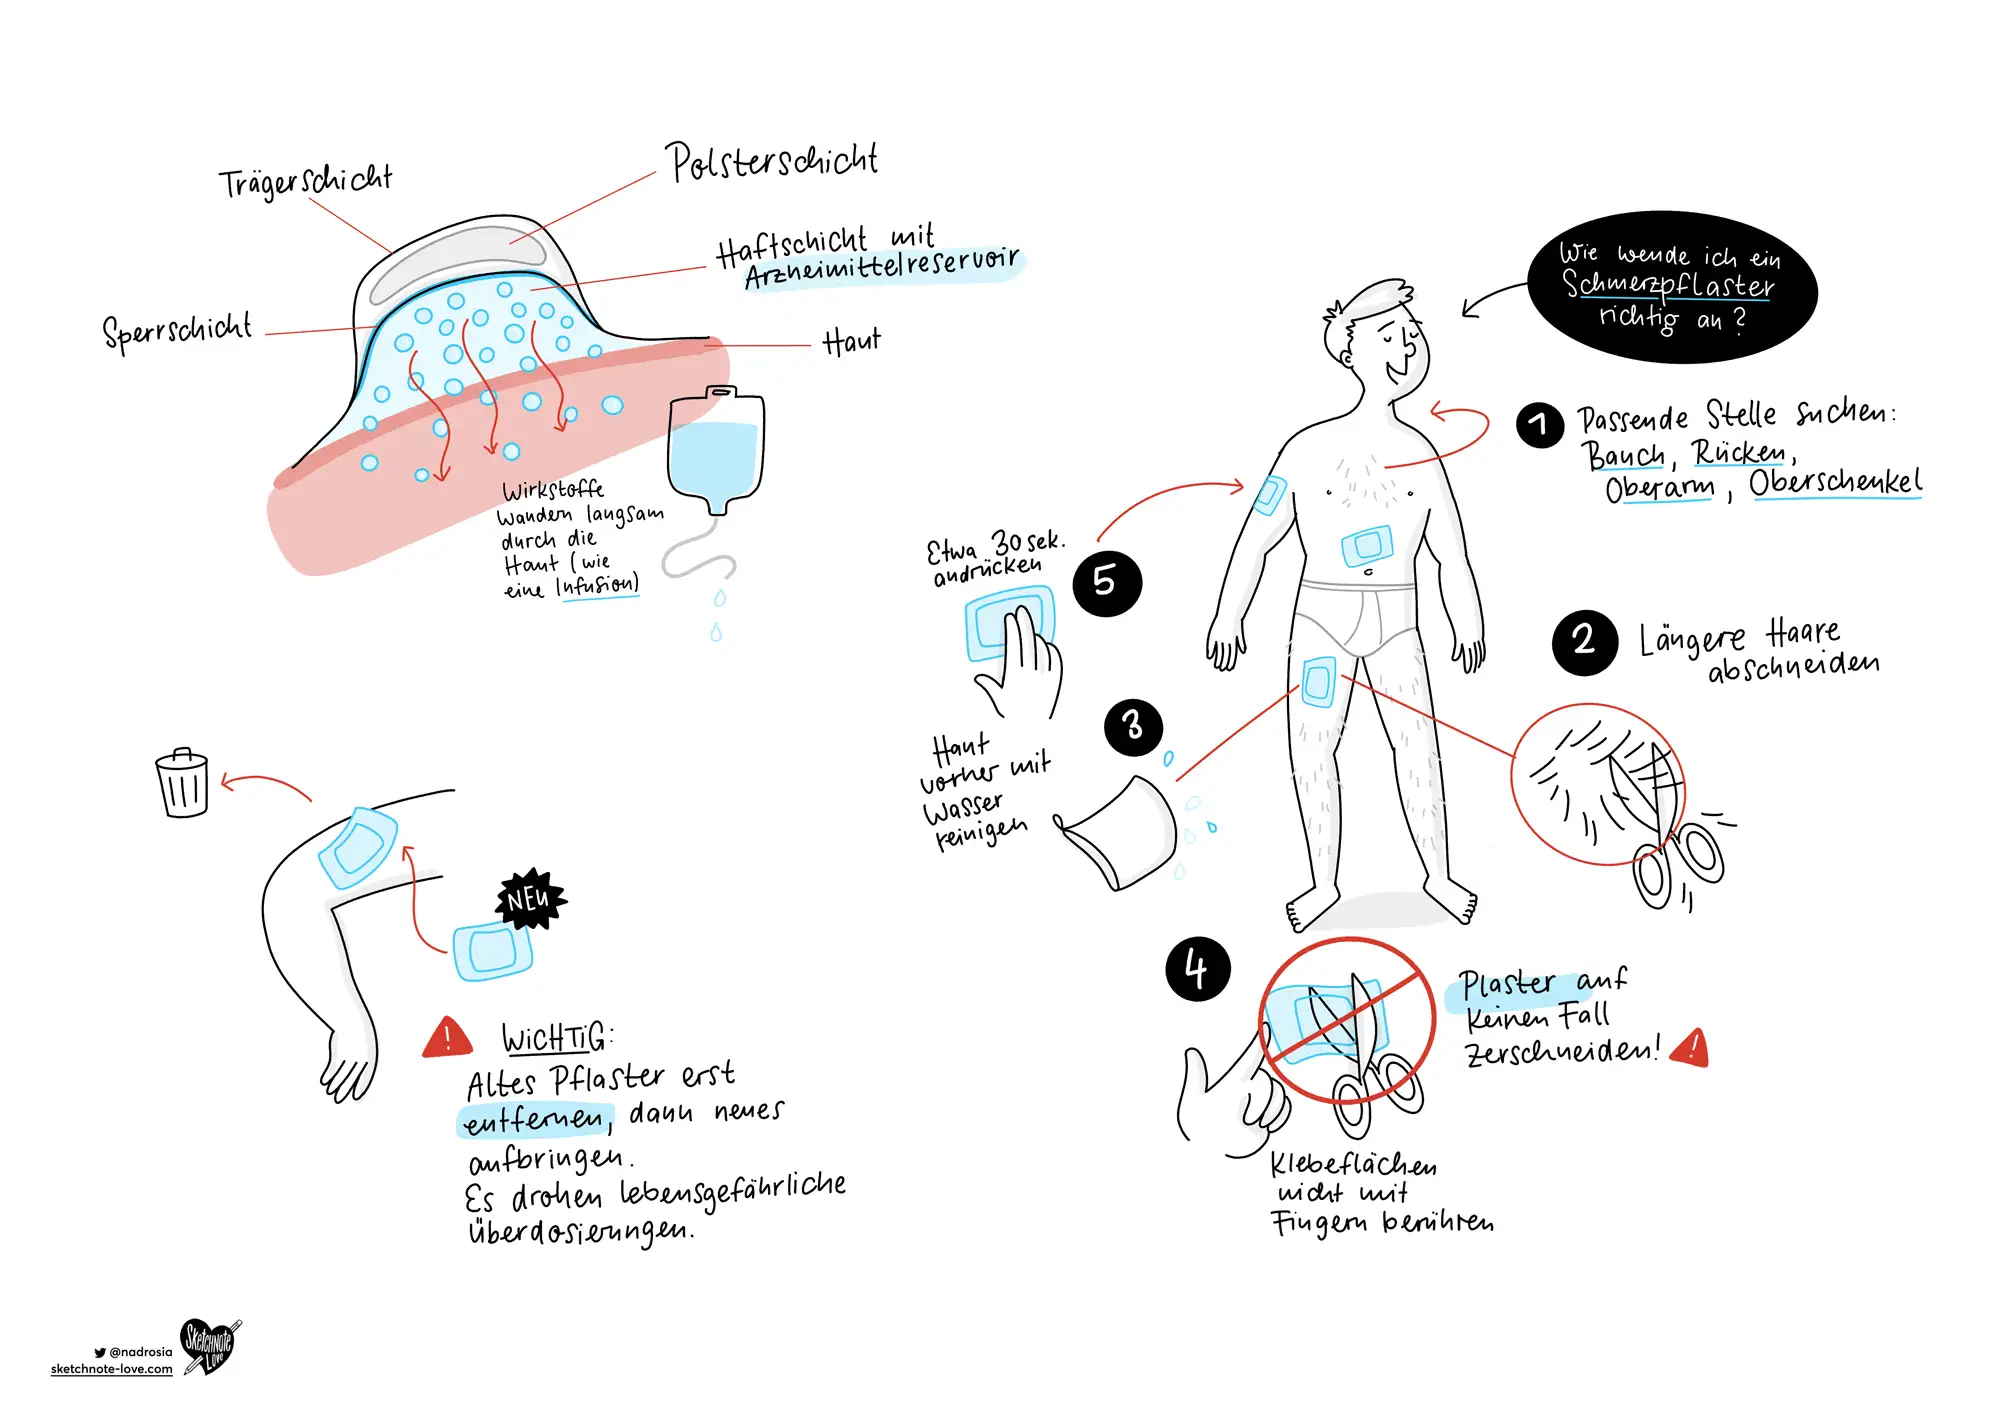 Trägerschicht
Polsterschicht
Haftschicht mit
Arzneimittelreservoir
Sperrschicht
Haut
Wirkstoffe
wandern langsam
durch die
Haut (wie
eine Infusion)
NEU
!
WICHTIG:
Altes Pflaster erst
entfernen, dann neues
aufbringen.
Es drohen lebensgefährliche
Überdosierungen.
Wie wende ich ein
Schmerzpflaster
richtig an?
1
Passende Stelle suchen:
Bauch, Rücken,
Oberarm, Oberschenkel
2
Längere Haare
abschneiden
3
Haut
vorher mit
Wasser
reinigen
4
Plaster auf
keinen Fall
zerschneiden!
!
Klebeflächen
nicht mit
Fingern berühren
5
Etwa 30 sek.
andrücken
@nadrosia
sketchnote-love.com
SKETCHNOTE
LOVE